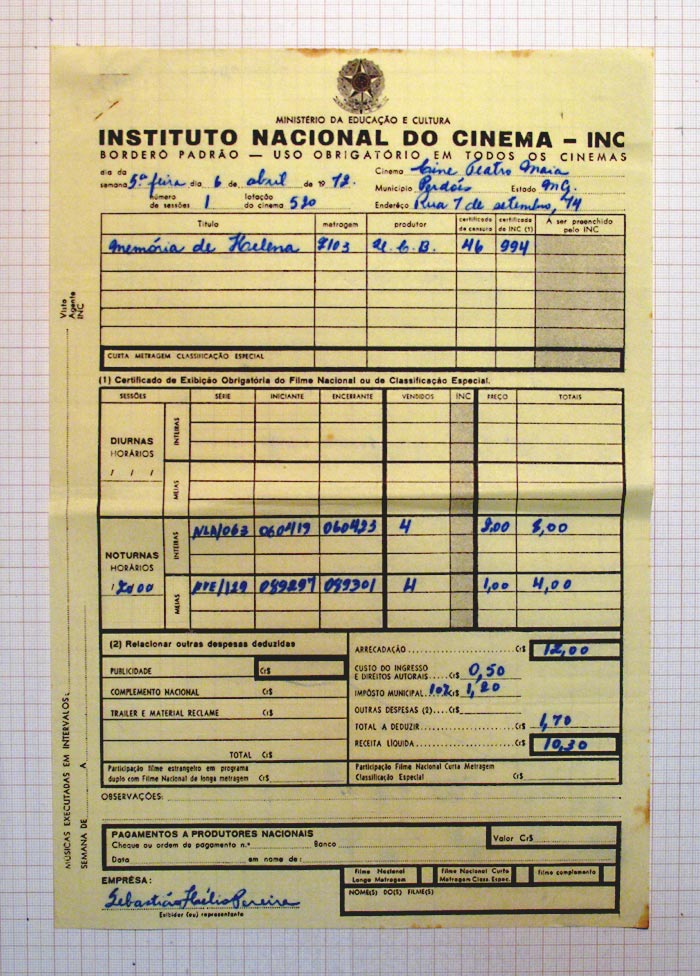 MINISTÉRIO DA EDUCAÇÃO E CULTURA
INSTITUTO NACIONAL DO CINEMA – INC
BORDERÔ PADRÃO — USO OBRIGATÓRIO EM TODOS OS CINEMAS
dia da semana 5ª feira dia 6 de abril de 1972.
Cinema Cine Teatro Maia
número de sessões 1 lotação do cinema 520
Município Perdões Estado MG.
Enderêço Rua 7 de setembro, 74
Título metragem produtor certificado de censura certificado do INC (1) A ser preenchido pelo INC
Memória de Helena 2103 U.C.B. 46 994
CURTA METRAGEM CLASSIFICAÇÃO ESPECIAL
(1) Certificado de Exibição Obrigatória do Filme Nacional ou de Classificação Especial.
SESSÕES SÉRIE INICIANTE ENCERRANTE VENDIDOS INC PREÇO TOTAIS
DIURNAS
HORÁRIOS
/ / /
INTEIRAS
MEIAS
NOTURNAS
HORÁRIOS
20 00
INTEIRAS NLA/063 060419 060423 4 2,00 8,00
MEIAS 089297 089301 4 1,00 4,00
(2) Relacionar outras despesas deduzidas
PUBLICIDADE Cr$
COMPLEMENTO NACIONAL Cr$
TRAILER E MATERIAL RECLAME Cr$
TOTAL Cr$
Participação filme estrangeiro em programa
duplo com Filme Nacional de longa metragem Cr$
ARRECADAÇÃO Cr$ 12,00
CUSTO DO INGRESSO
E DIREITOS AUTORAIS Cr$ 0,50
IMPÔSTO MUNICIPAL 10% Cr$ 1,20
OUTRAS DESPESAS (2) Cr$
TOTAL A DEDUZIR Cr$ 1,70
RECEITA LÍQUIDA Cr$ 10,30
Participação Filme Nacional Curta Metragem
Classificação Especial Cr$
OBSERVAÇÕES:
PAGAMENTOS A PRODUTORES NACIONAIS
Cheque ou ordem de pagamento n.º Banco Valor Cr$
Data em nome de:
EMPRÊSA:
Sebastião Hélio Pereira
Exibidor (ou) representante
Filme Nacional Longa Metragem
Filme Nacional Curta Metragem Class. Espec.
filme complemento
NOME(S) DO(S) FILME(S)
Visto Agente INC
MÚSICAS EXECUTADAS EM INTERVALOS:
SEMANA DE A